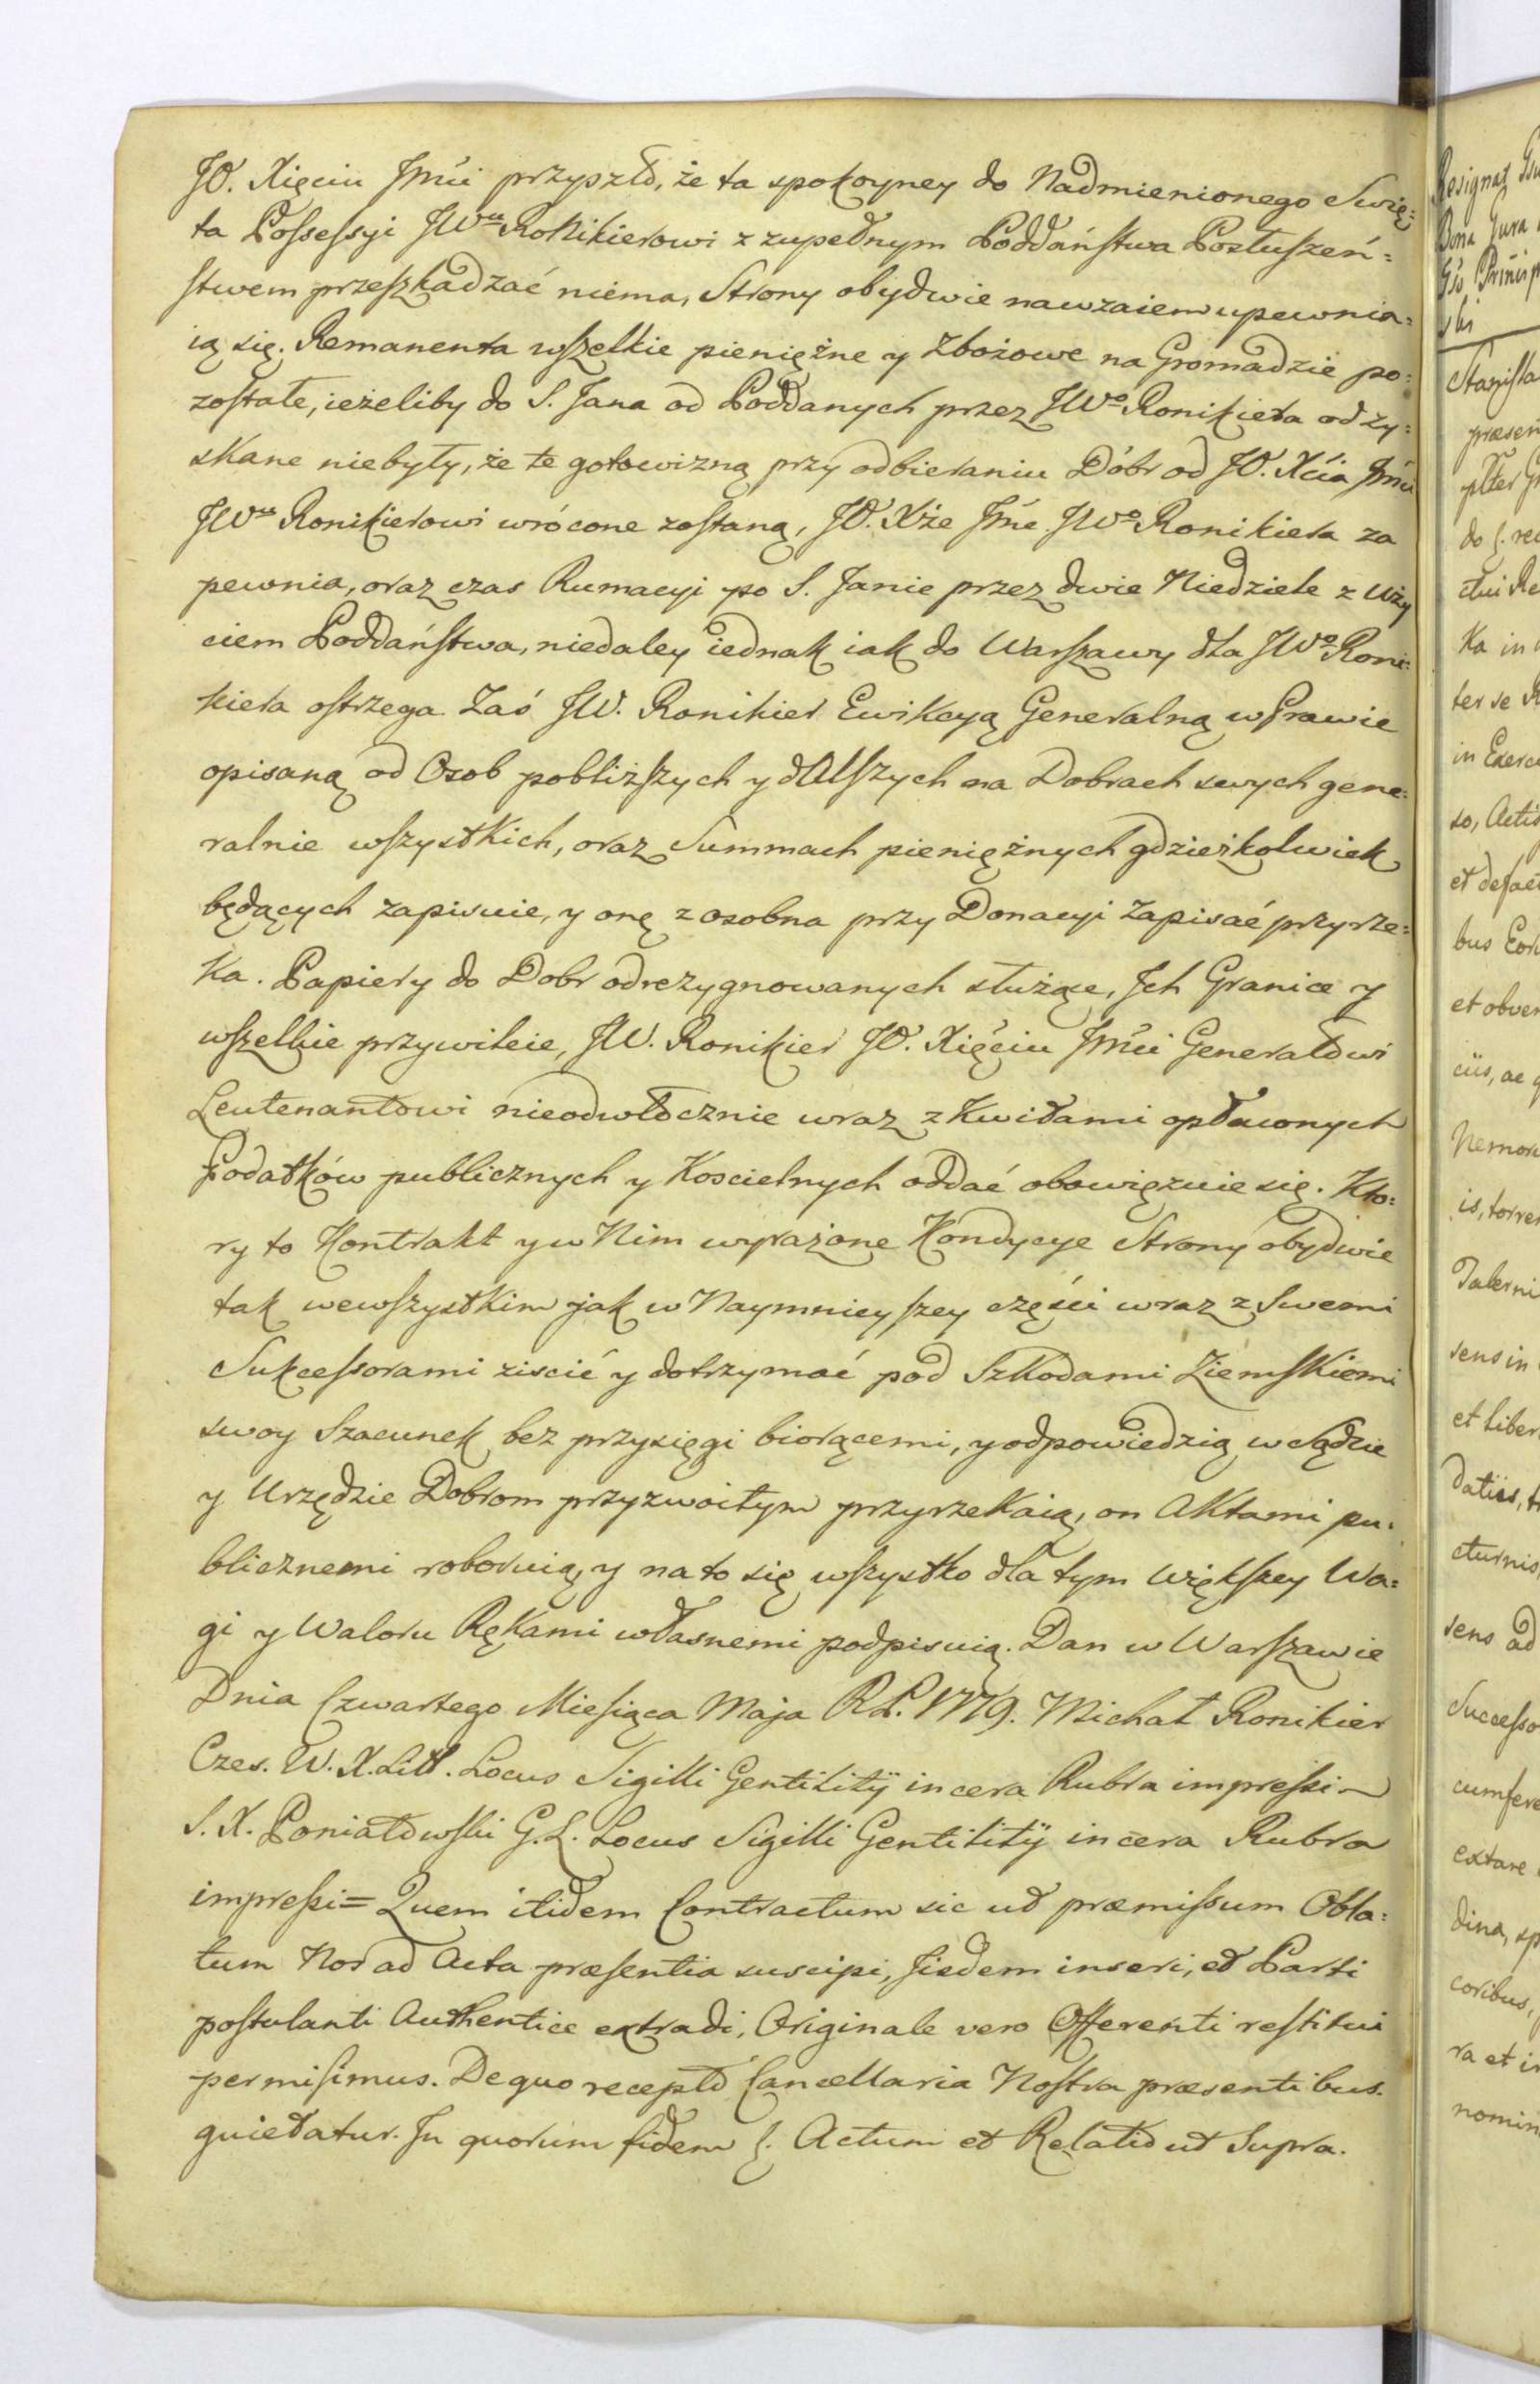 JO. Xięciu Jmći przyszło, że ta spokoyney do Nadmienionego Swię:
ta Possessyi JWu Ronikierowi z zupełnym Poddaństwa Posłuszeń:
stwem przeszkadzać niema, Strony obydwie nawzaiem upewnia:
ią się. Remanenta wszelkie pieniężne y Zbożowe na Gromadzie po:
zostałe, ieżeliby do S. Jana od Poddanych przez JWo Ronikiera odzy:
skane niebyły, że te gotowizną przy odbieraniu Dóbr od JO. Xcia Jmći
JWu Ronikierowi wrócone zostaną, JO. Xże Jmć JWo Ronikiera za
pewnia, oraz czas Rumacyi po S. Janie przez dwie Niedziele z Uży
ciem Poddaństwa, niedaley iednak iak do Warszawy dla JWo Roni:
kiera ostrzega. Zaś JW. Ronikier Ewikcyą Generalną w Prawie
opisaną od Osob pobliższych y dalszych na Dobrach swych gene:
ralnie wszystkich, oraz Summach pieniężnych gdzieżkolwiek
będących zapisuie, y onę z osobna przy Donacyi Zapisać przyrze:
ka. Papiery do Dobr odrezygnowanych służące, Jch Granice y
wszelkie przywileie, JW. Ronikier JO. Xięciu Jmći Generałowi
Leutenantowi nieodwłocznie wraz z Kwitami opłaconych
Podatków publicznych y Koscielnych oddać obowięzuie się. Kto:
ry to Kontrakt y w Nim wyrażone Kondycye Strony obydwie
tak wewszystkim jak w Naymnieyszey części wraz z Swemi
Sukcessorami ziscić y dotrzymać pod Szkodami Ziemskiemi
swoy Szacunek bez przysięgi biorącemi, y odpowiedzią w Sądzie
y Urzędzie Dobrom przyzwoitym przyrzekaią, on Aktami pu:
blicznemi roboruią, y na to się wszystko dla tym większey Wa:
gi y Waloru Rękami własnemi podpisuią. Dan w Warszawie
Dnia Czwartego Miesiąca Maja R.P. 1779. Michał Ronikier
Czes. W. X. Litt. Locus Sigilli Gentilitÿ in cera Rubra impressi
S. X. Poniatowski G. L. Locus Sigilli Gentilitÿ in cera Rubra
impressi = Quem itidem Contractum sic ut præmissum Obla:
tum Nos ad Acta præsentia suscipi, Jisdem inseri, et Parti
postulanti Authentice extradi, Originale vero Offerenti restitui
permisimus. De quo recepto Cancellaria Nostra præsentibus.
quietatur. In quorum fidem Actum et Relatio ut Supra.
Resignat
Bona Jura
ski
Stanisla
præsen
do
in
ter se
in Exerc
so, Acti
bus
et obven
ciis, ac
Nemor
is, torren
Taberni
sens in
et liber
datiis,
cturnis
sens ad
Successo
cumfere
extare
dina, sp
coribus,
ra et in
nomin